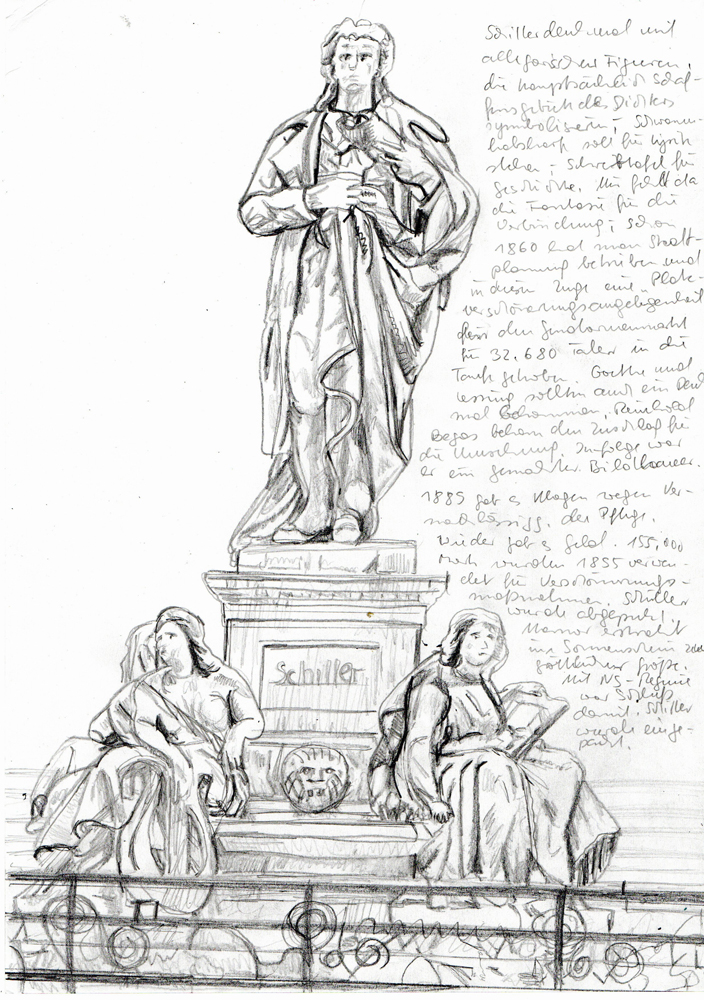 Schillerdenkmal mit
allegorischen Figuren,
die hauptsächlich Schaf-
fensgebiete des Dichters
symbolisieren; Schwanen-
halsharfe soll für Lyrik
stehen; Schreibtafel für
Geschichte. Mir fehlt da
die Fantasie für die
Verbindung; schon
1860 hat man Stadt-
planung betrieben und
in diesem Zuge eine Platz-
verschönerungsangelegenheit
den Gendarmenmarkt
für 32.680 Taler in die
Tasche geschoben. Goethe und
Lessing sollten auch ein Denk
mal bekommen, Reinhold
Begas bekam den Zuschlag für
die Umsetzung. Infolge war
er ein gemachter Bildhauer.
1885 gab es Klagen wegen Ver-
nachlässigg. der Pflege.
wieder gab es Geld. 155,000
Mark wurden 1855 verwen-
det für Verschönerungs-
maßnahmen, Schiller
wurde abgeputzt!
Marmor erstrahlt
im Sonnenschein
göttlicher Größe.
Mit NS-Regime
war Schluß
damit. Schiller
wurde einge-
packt.
Schiller